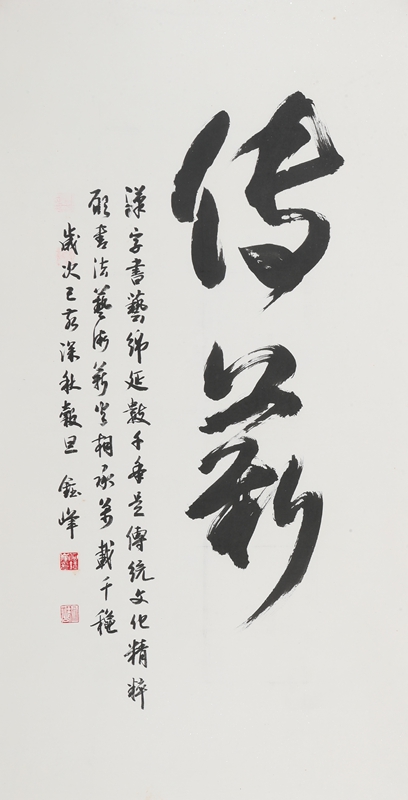 传薪
漢字書藝綿延數千年是傳統文化精粹
願書法藝術薪火相承萬載千穐
歲次己亥深秋穀旦 鈺峰